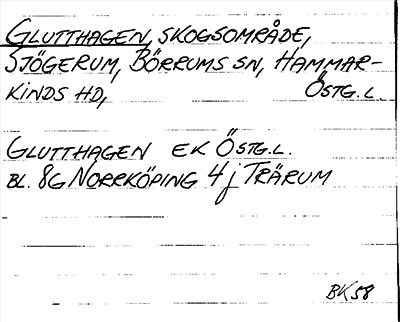 GLUTTHAGEN, SKOGSOMRÅDE,
SJÖGERUM, BÖRRUMS SN, HAMMAR-
KINDS HD, ÖSTG.L.
GLUTTHAGEN EK ÖSTG.L.
BL. 8G NORRKÖPING 4j TRÄRUM
BK58